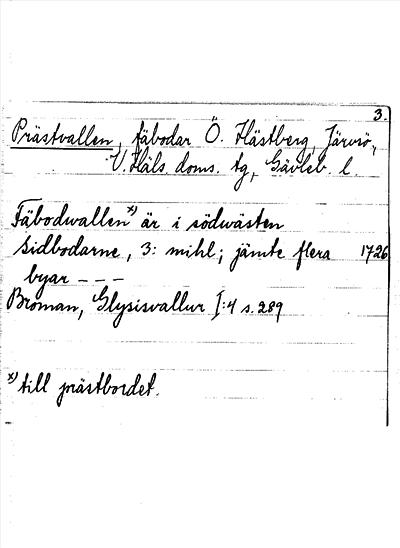 3.
Prästvallen, fäbodar Ö. Hästberg, Järvsö,
V. Häls. doms. tg, Gävleb. l.
Fäbodwallen x) är i södwästen
Sidbodarne, 3: mihl; jämte flera 1726
byar - - -
Broman, Glysisvallur I:4 s. 289
x) till prästbordet.